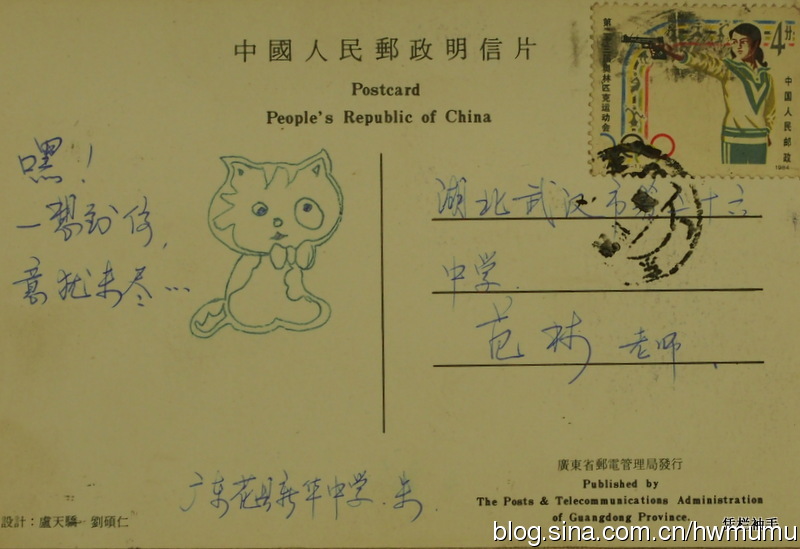 中國人民郵政明信片
Postcard
People's Republic of China
第二十三届奥林匹克运动会
4分
中国人民邮政
1984
嘿！
一想到你，
意犹未尽…
湖北武汉市第二十六
中学
范林 老师
广东花县新华中学.朱
設計：盧天驕 劉碩仁
廣東省郵電管理局發行
Published by
The Posts & Telecommunications Administration
of Guangdong Province.
凭栏袖手
blog.sina.com.cn/hwmumu